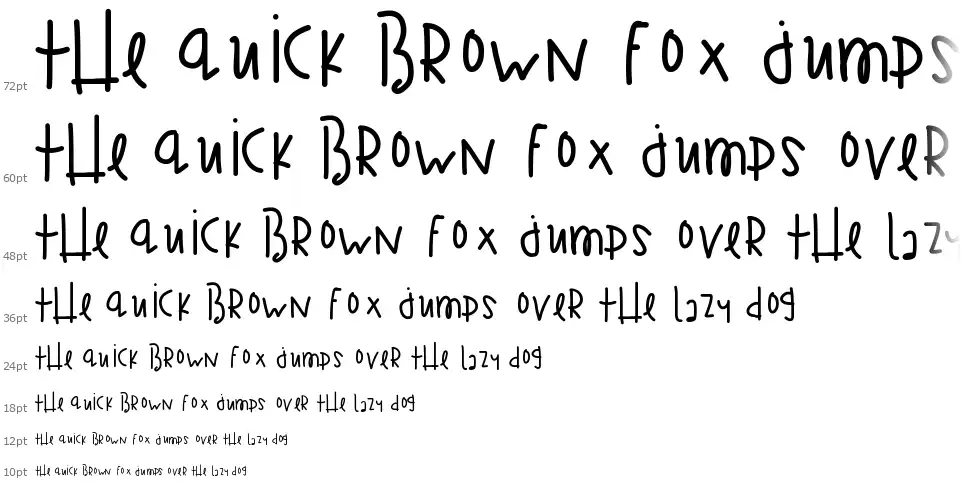 72pt the quick Brown fox jumps
60pt the quick Brown fox jumps over
48pt the quick Brown fox jumps over the lazy
36pt the quick Brown fox jumps over the lazy dog
24pt the quick Brown fox jumps over the lazy dog
18pt the quick Brown fox jumps over the lazy dog
12pt the quick Brown fox jumps over the lazy dog
10pt the quick Brown fox jumps over the lazy dog